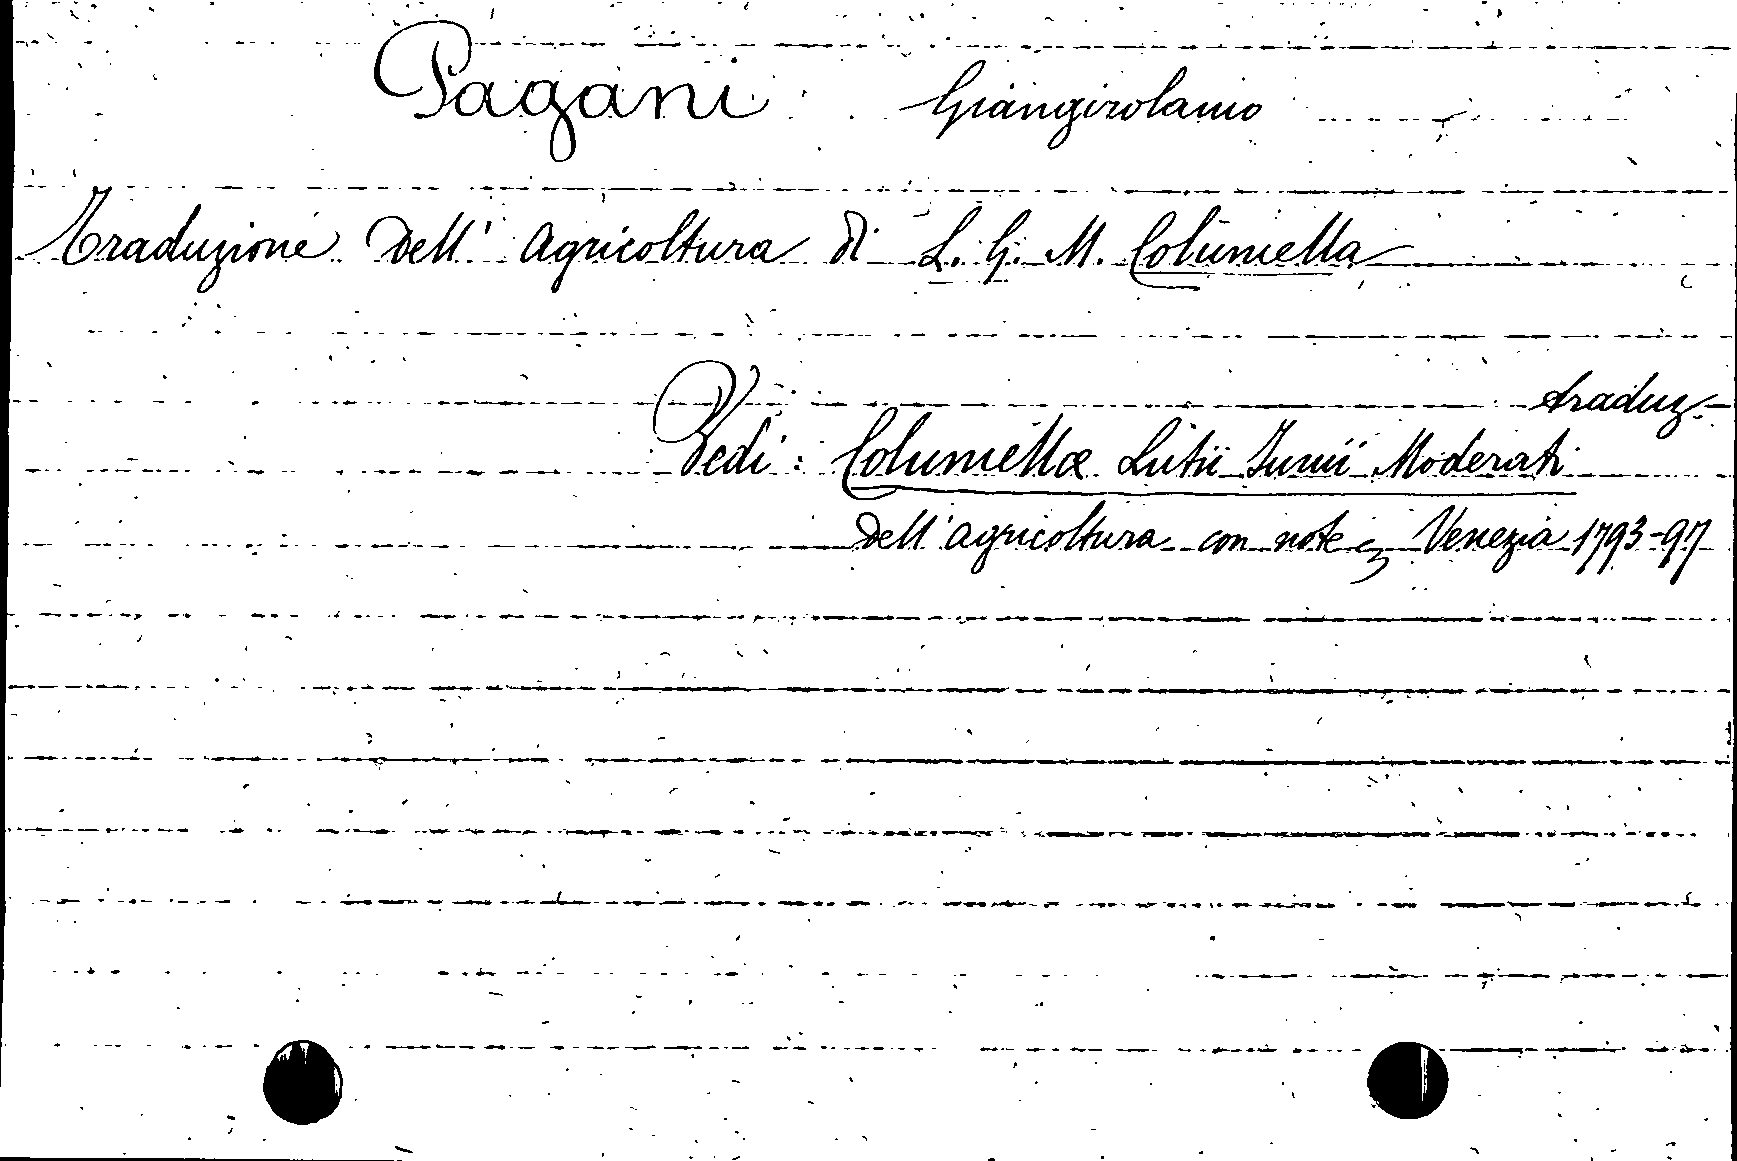 Pagani Giangirolamo
Traduzione dell' agricoltura di L. G. M. Columella
traduz.
Vedi: Columellæ Lutii Junii Moderati
dell'agricoltura con note Venezia 1793-97